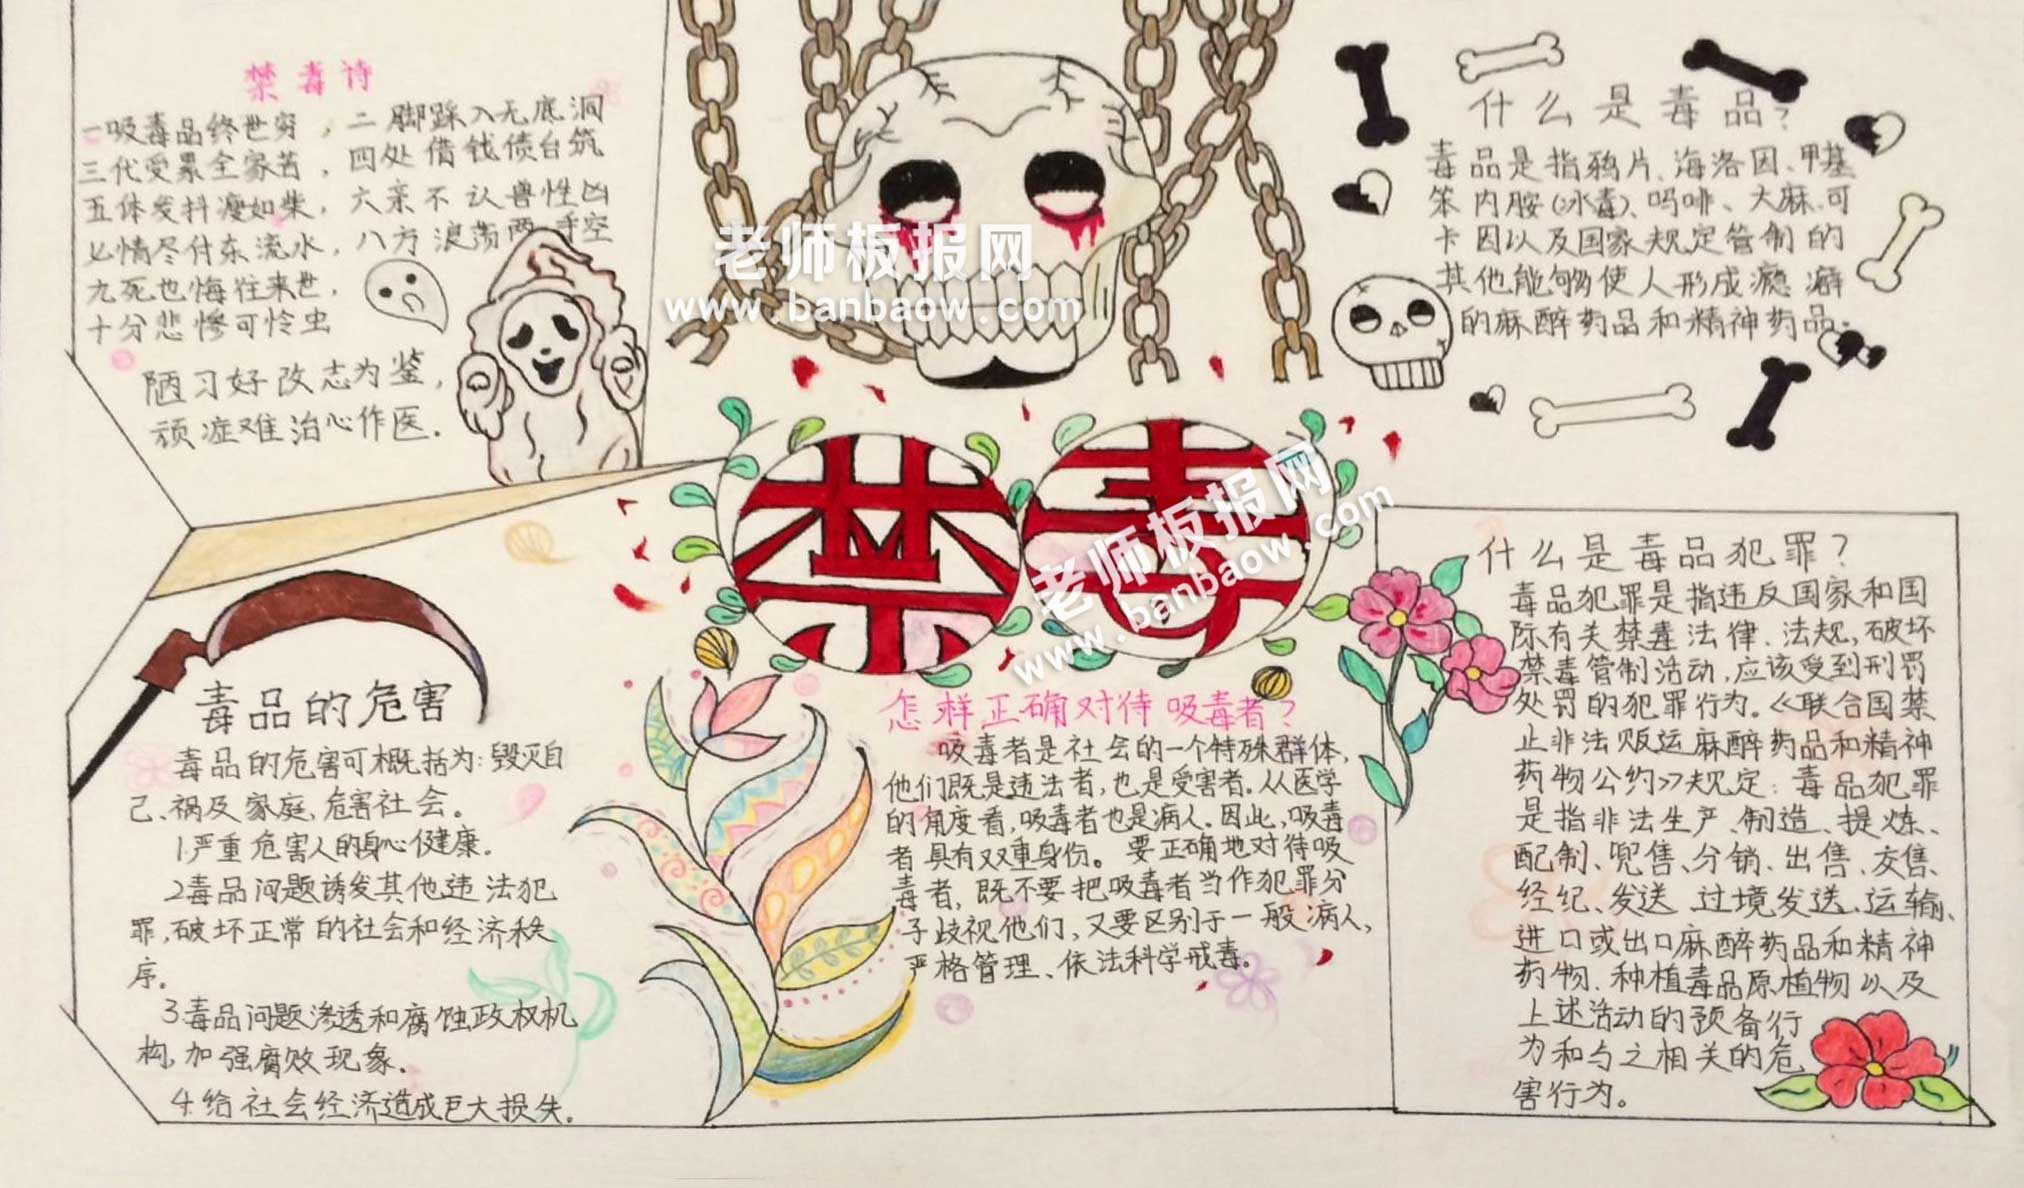 禁毒诗
一吸毒品终世穷，二脚踩入无底洞
三代受累全家苦，四处借钱债台筑
五体发抖瘦如柴，六亲不认兽性凶
七情尽付东流水，八方浪荡两手空
九死也悔往来世，
十分悲惨可怜虫
陋习好改志为鉴，
顽症难治心作医．
老师板报网
www.banbaow.com
什么是毒品？
毒品是指鸦片、海洛因、甲基
笨内胺(冰毒)、吗啡、大麻、可
卡因以及国家规定管制的
其他能够使人形成瘾癖
的麻醉药品和精神药品．
禁毒
老师板报网
www.banbaow.com
毒品的危害
毒品的危害可概括为：毁灭自
己、祸及家庭，危害社会。
1.严重危害人的身心健康．
2毒品问题诱发其他违法犯
罪，破坏正常的社会和经济秩
序．
3毒品问题渗透和腐蚀政权机
构，加强腐败现象．
4.给社会经济造成巨大损失．
怎样正确对待吸毒者？
吸毒者是社会的一个特殊群体，
他们既是违法者，也是受害者．从医学
的角度看，吸毒者也是病人．因此，吸毒
者具有双重身份。要正确地对待吸
毒者，既不要把吸毒者当作犯罪分
子歧视他们，又要区别于一般病人，
严格管理、依法科学戒毒。
什么是毒品犯罪？
毒品犯罪是指违反国家和国
际有关禁毒法律、法规，破坏
禁毒管制活动，应该受到刑罚
处罚的犯罪行为。《联合国禁
止非法贩运麻醉药品和精神
药物公约》规定：毒品犯罪
是指非法生产、制造、提炼、
配制、兜售、分销、出售、交售、
经纪、发送、过境发送、运输、
进口或出口麻醉药品和精神
药物、种植毒品原植物以及
上述活动的预备行
为和与之相关的危
害行为。